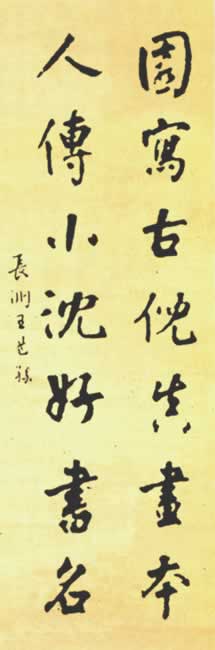 圖寫古倪真畫本
人傳小沈好書名
長洲王芑孫